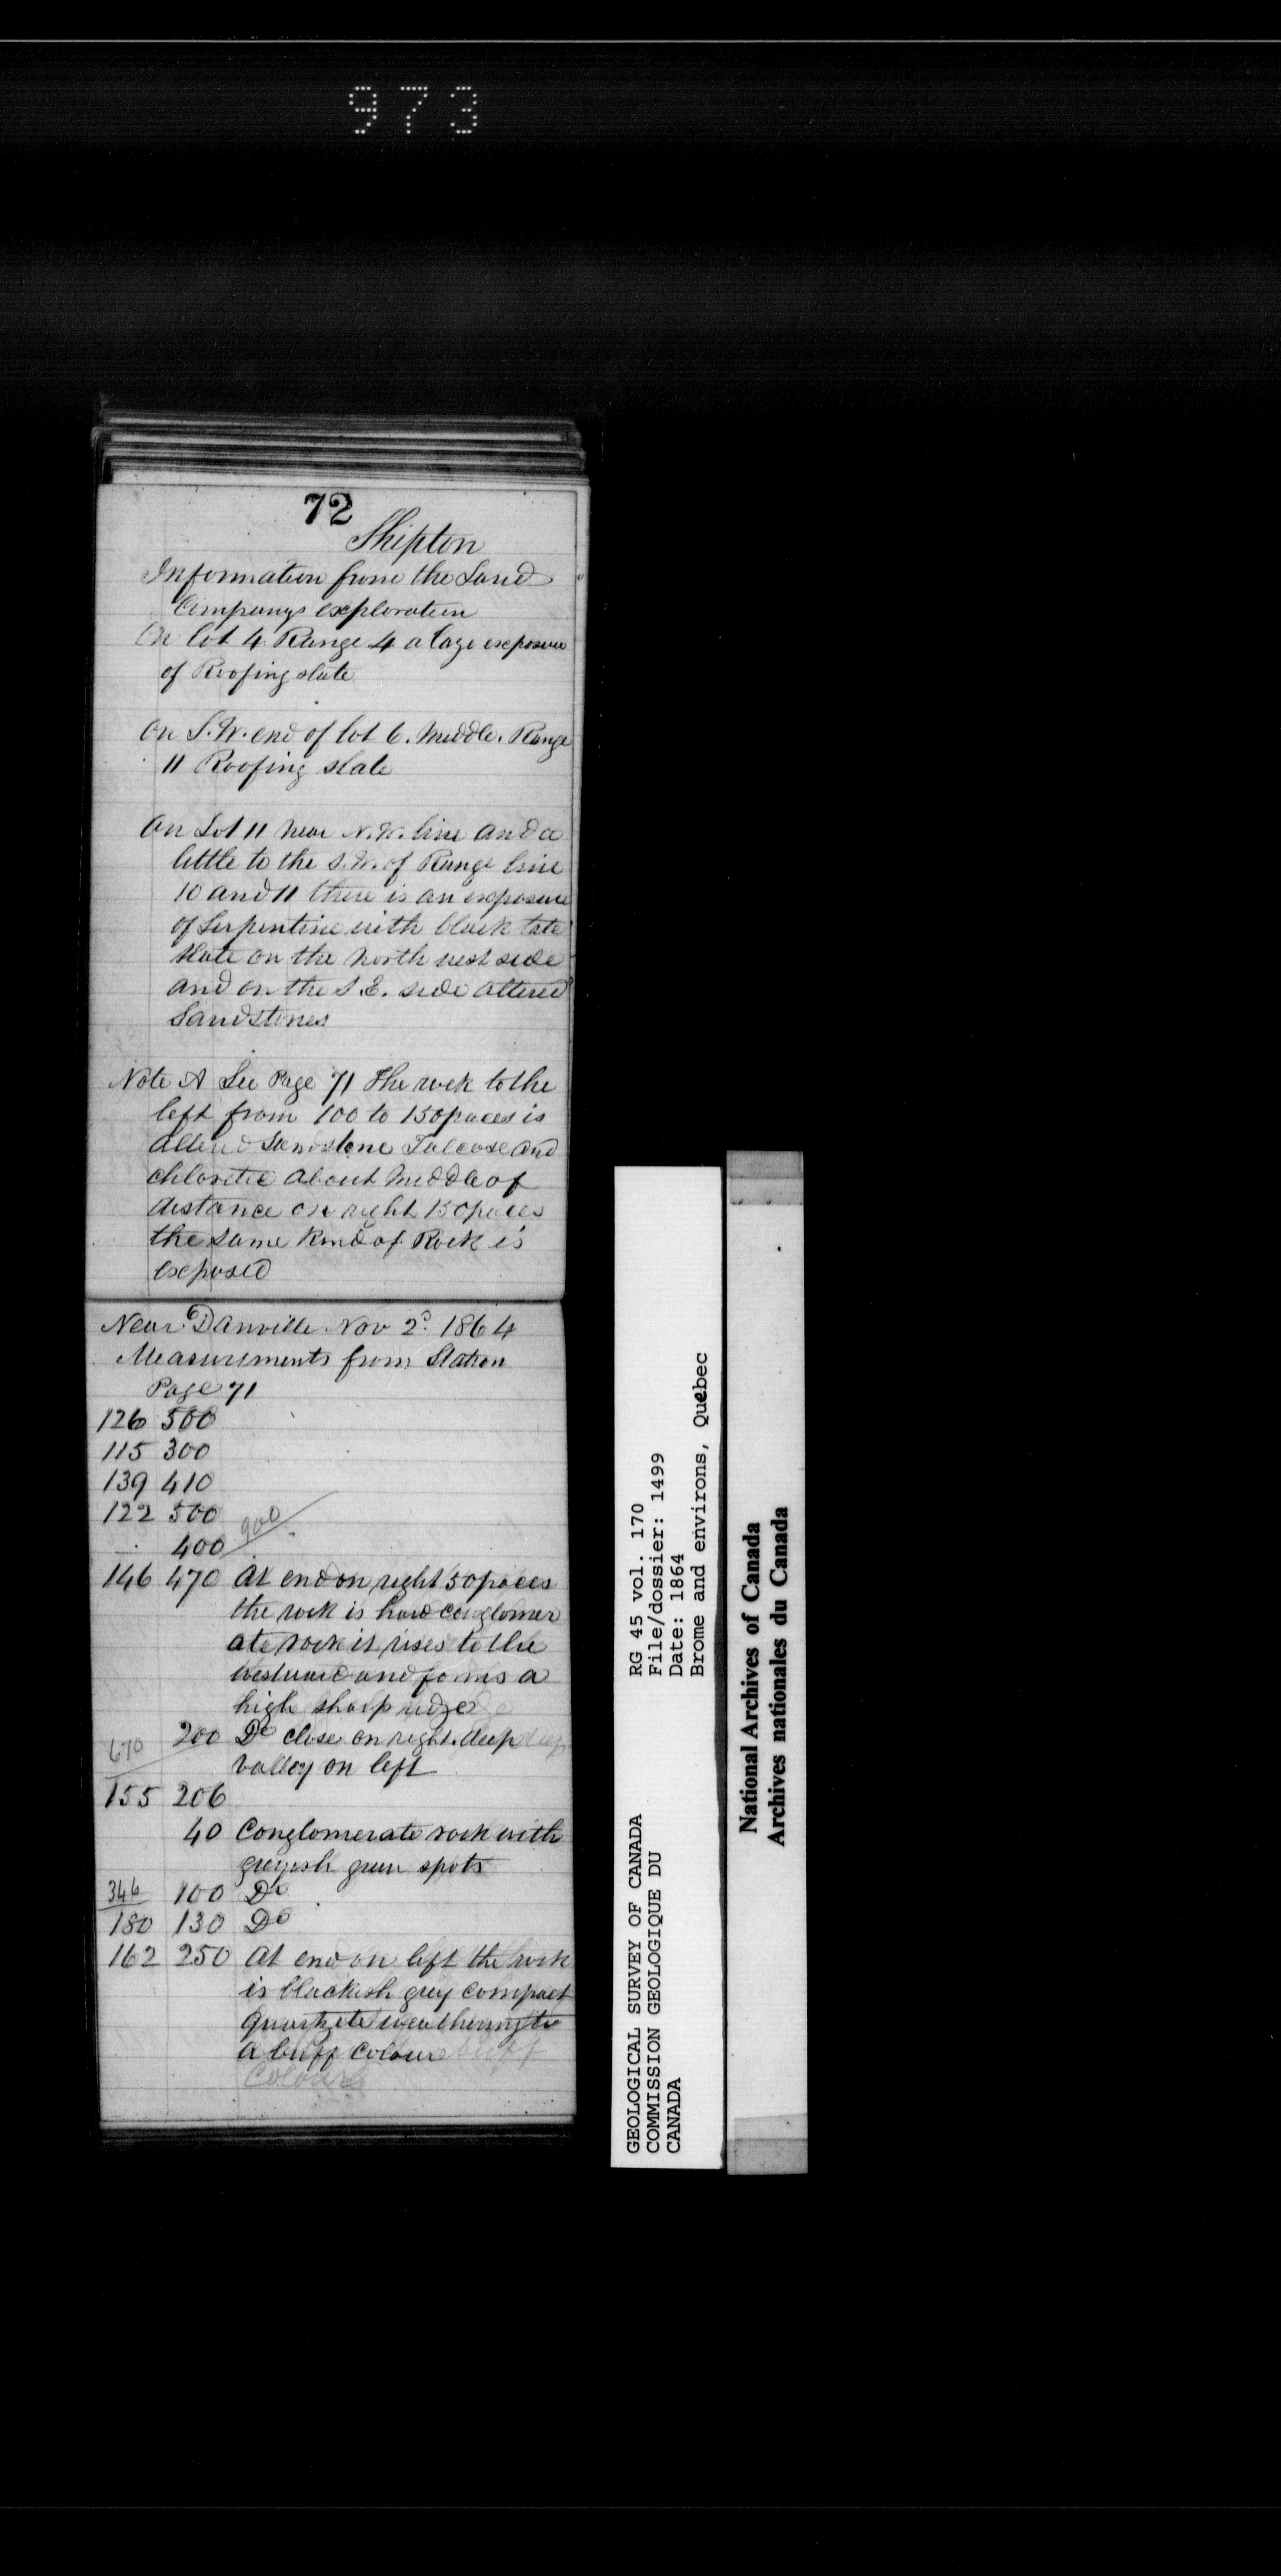 973
72
Shipton
Information from the Land
Companys exploration
On lot 4 Range 4 a large exposure
of Roofing slate
On S.W. end of lot 6. Middle. Range
11 Roofing slate
On Lot 11 near N.W. line and a
little to the S.W. of Range line
10 and 11 there is an exposure
of Serpentine with black
slate on the north west side
and on the S.E. side altered
Sandstones
Note A See Page 71 The rock to the
left from 100 to 150 paces is
altered Sandstone Talcose and
chloritic about middle of
distance on right 150 paces
the same kind of Rock is
exposed
Near Danville Nov 2d. 1864
Measurements from Station
Page 71
126 500
115 300
139 410
122 500
400 900
146 470 At end on right 50 paces
the rock is hard conglomer
ate rock it rises to the
westward and forms a
high sharp ridge
200 Do close on right. deep
670
valley on left
155 206
40 Conglomerate rock with
greyish green spots
346 100 Do
180 130 Do
162 250 At end on left the rock
is blackish grey compact
quartzite weathering to
a buff colour buff
colour
GEOLOGICAL SURVEY OF CANADA
COMMISSION GEOLOGIQUE DU
CANADA
RG 45 vol. 170
File/dossier: 1499
Date: 1864
Brome and environs, Quebec
National Archives of Canada
Archives nationales du Canada